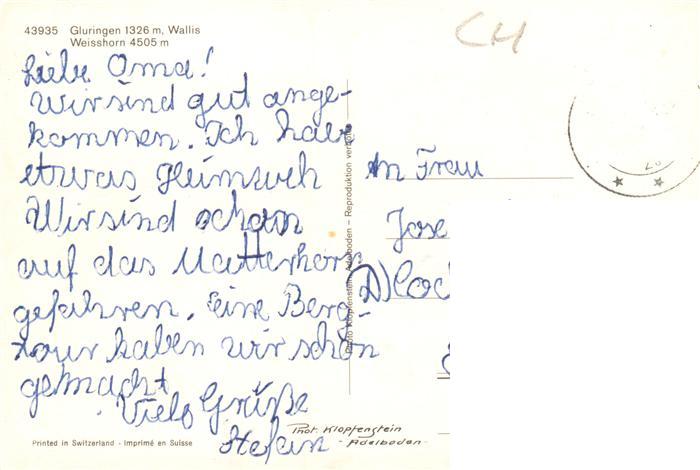 43935 Gluringen 1326 m, Wallis
Weisshorn 4505 m
CH
Liebe Oma!
Wir sind gut ange-
kommen. Ich habe
etwas Heimweh
Wir sind schon
auf das Matterhorn
gefahren. Eine Berg-
tour haben wir schön
gemacht
Viele Grüße
Stefan
Printed in Switzerland - Imprimé en Suisse
Photo Klopfenstein, Adelboden – Reproduktion verboten
Phot. Klopfenstein
- Adelboden -
An Frau
Jose
(D)